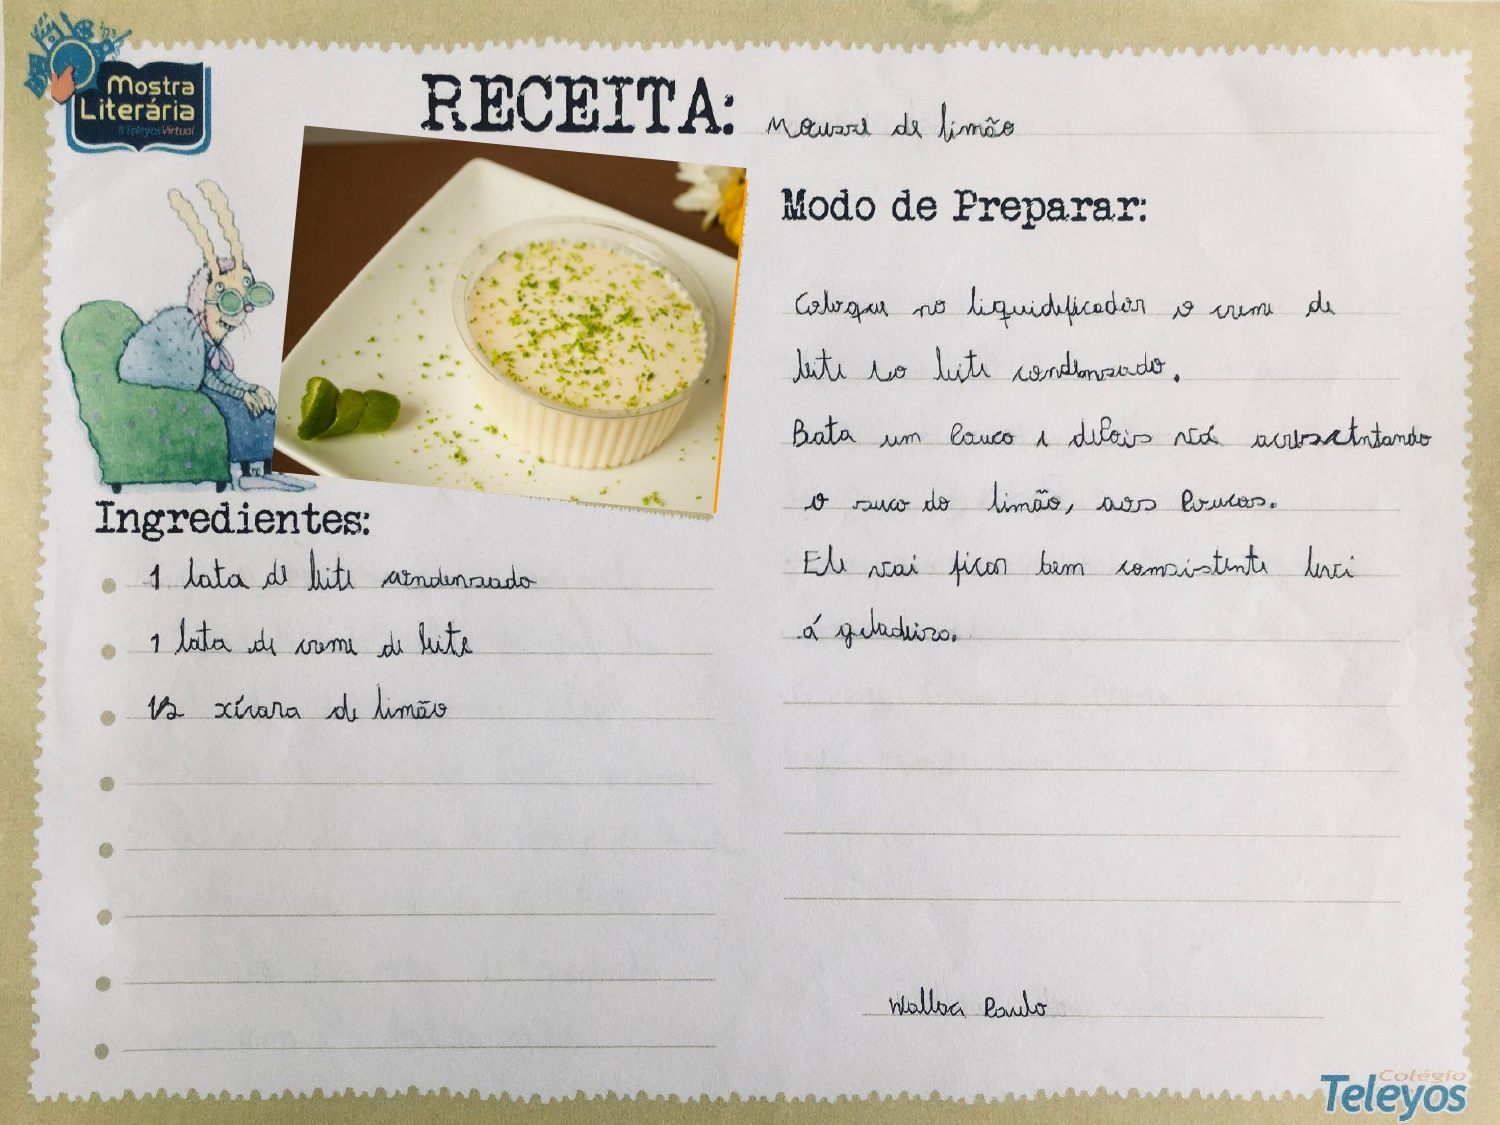 Mostra
Literária
#Teleyos Virtual
RECEITA: Mousse de limão
Ingredientes:
1 lata de leite condensado
1 lata de creme de leite
1/2 xícara de limão
Modo de Preparar:
Coloque no liquidificador o creme de
leite e o leite condensado.
Bata um pouco e depois vá acrescentando
o suco do limão, aos poucos.
Ele vai ficar bem consistente leve
á geladeira.
Wallace Paulo
Colégio
Teleyos